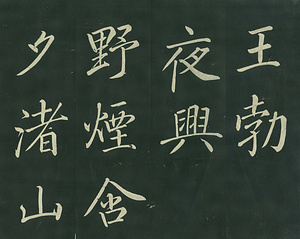 王勃
夜興
野煙含
夕渚山